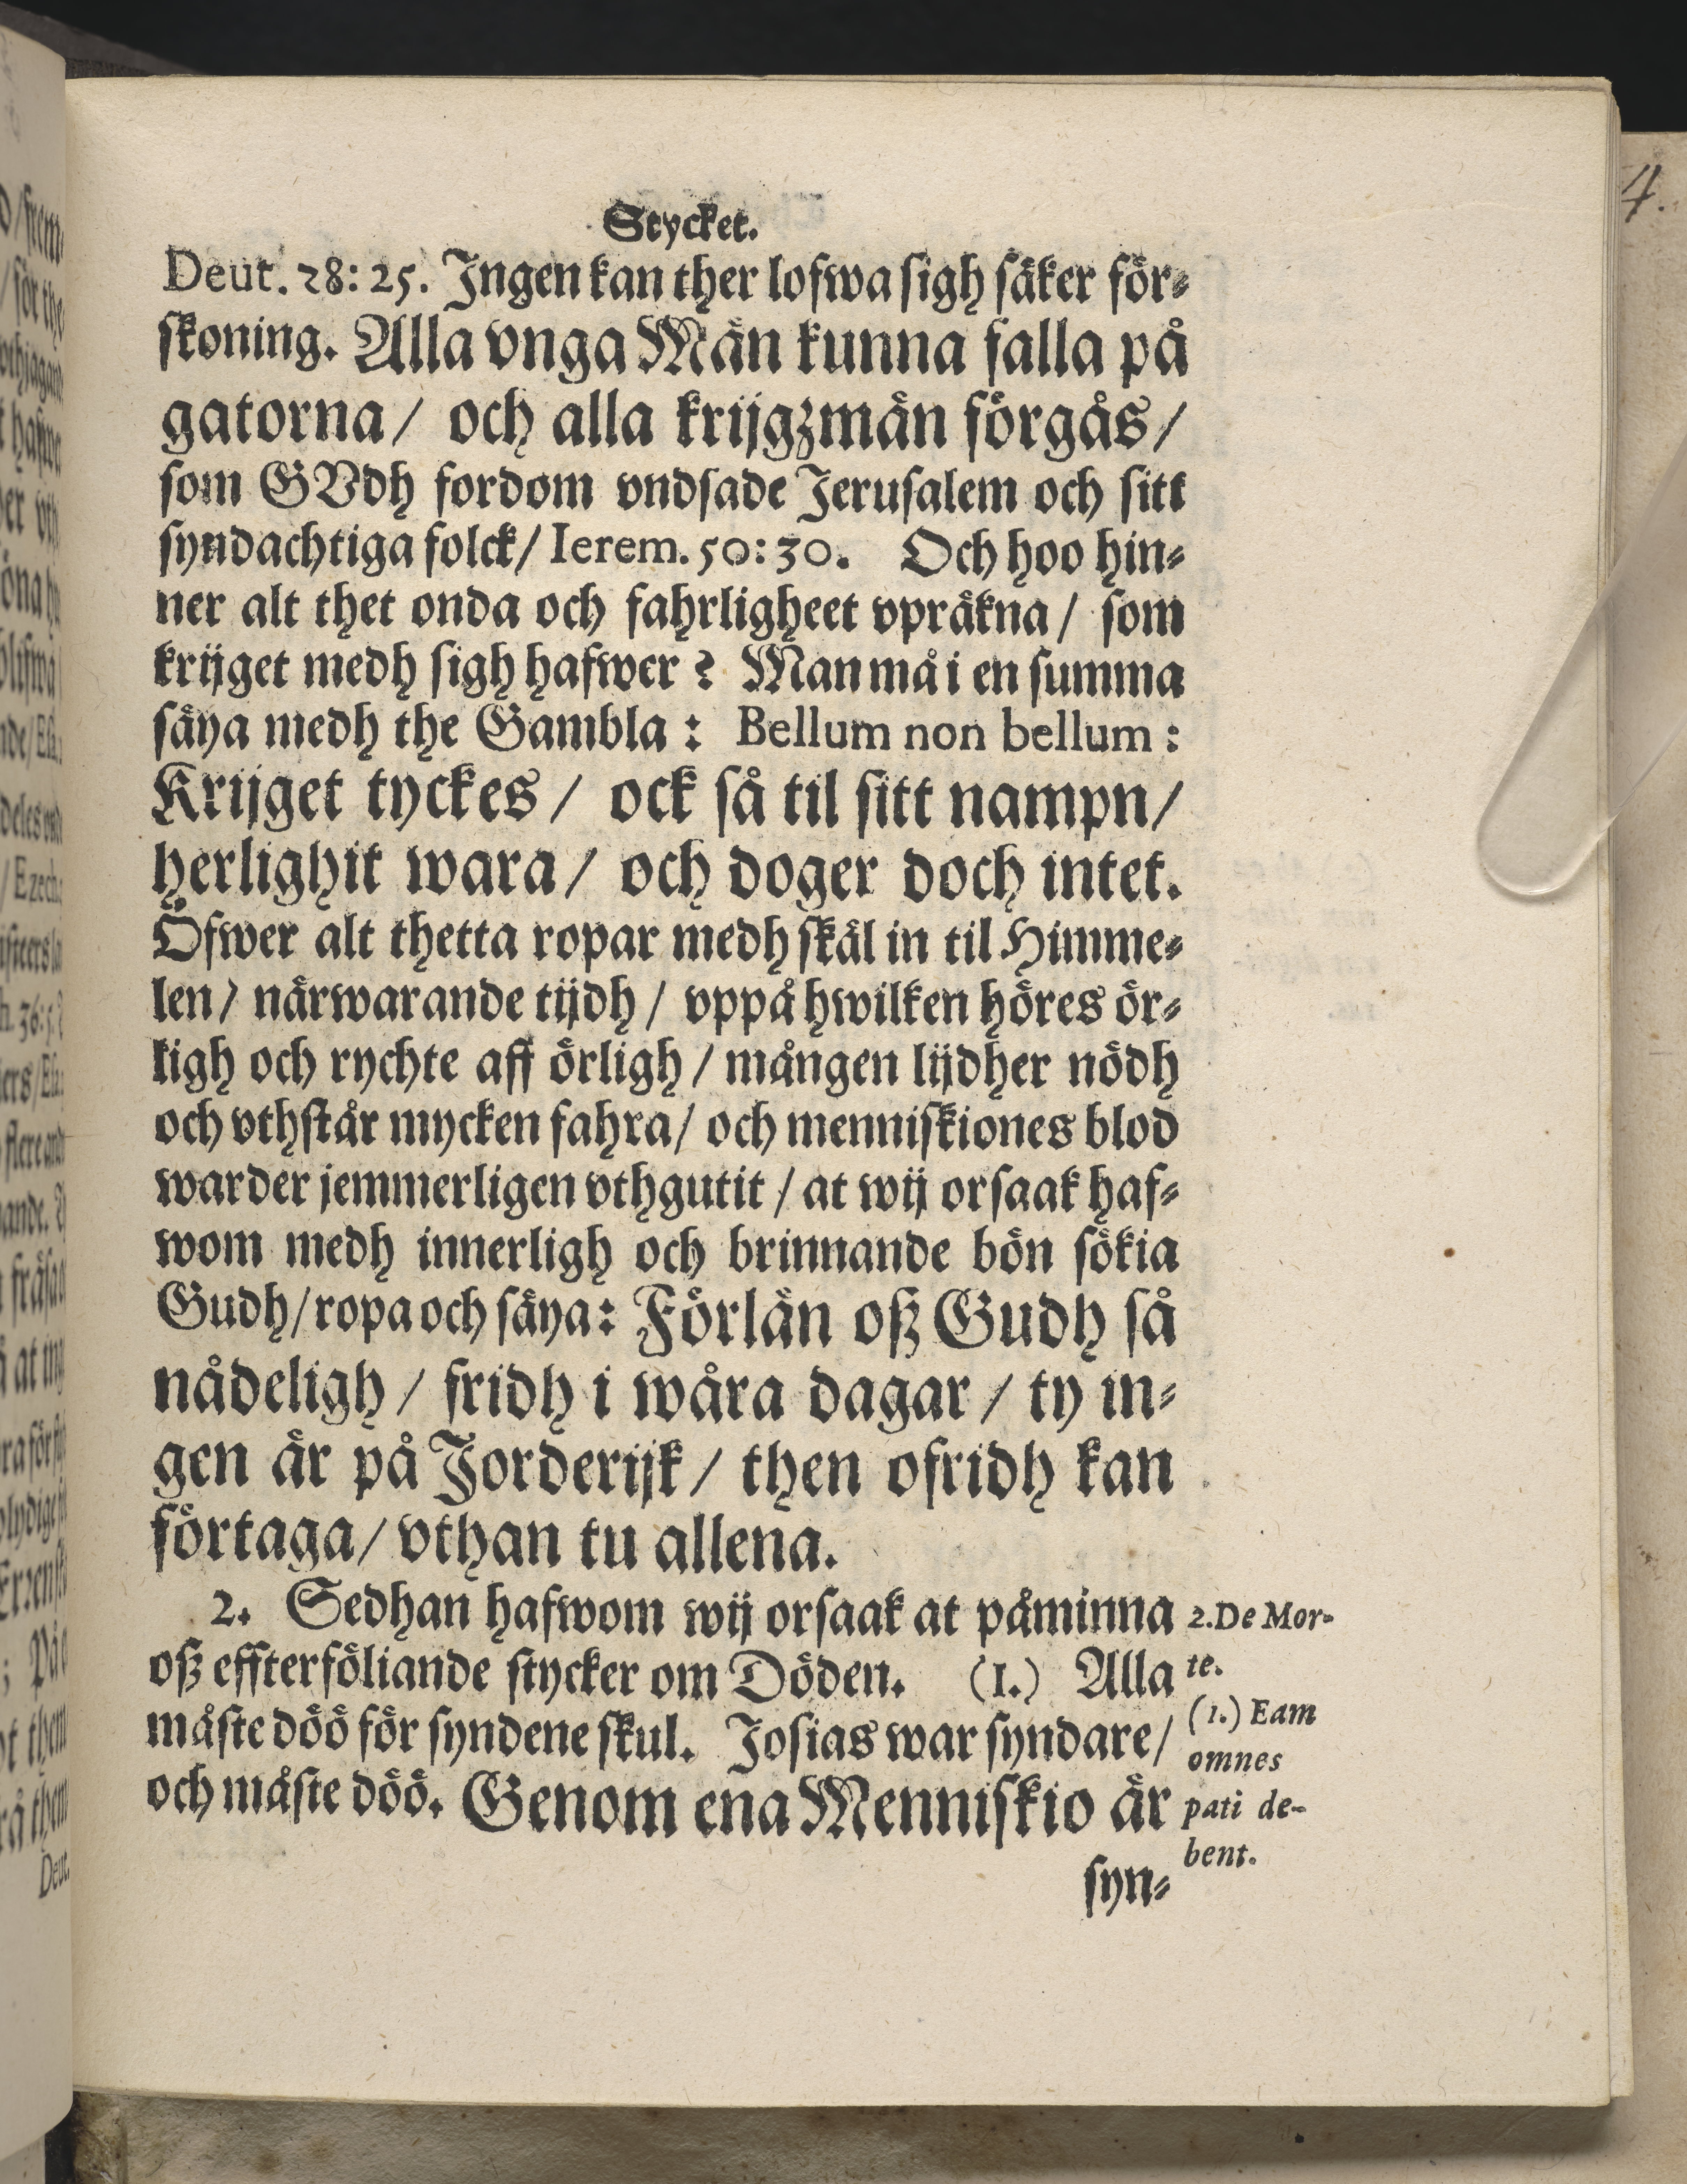 Stycket.
Deut. 28: 25. Ingen kan ther lofwa sigh säker för-
skoning. Alla vnga Män kunna falla på
gatorna/ och alla krijgzmän förgås/
som GVdh fordom vndsade Jerusalem och sitt
syndachtiga folck/ Ierem. 50: 30. Och hoo hin-
ner alt thet onda och fahrligheet vpräkna/ som
krijget medh sigh hafwer? Man må i en summa
säya medh the Gambla: Bellum non bellum:
Krijget tyckes/ ock så til sitt nampn/
herlighit wara/ och doger doch intet.
Öfwer alt thetta ropar medh skäl in til Himme-
len/ närwarande tijdh/ vppå hwilken höres ör-
ligh och rychte aff örligh/ mången lijdher nödh
och vthstår mycken fahra/ och menniskiones blod
warder jemmerligen vthgutit/ at wij orsaak haf-
wom medh innerligh och brinnande bön sökia
Gudh/ ropa och säya: Förlän oß Gudh så
nådeligh/ fridh i wåra dagar/ ty in-
gen är på Jorderijk/ then ofridh kan
förtaga/ vthan tu allena.
2. Sedhan hafwom wij orsaak at påminna
oß effterföliande stycker om Döden. (I.) Alla
måste döö för syndene skul. Josias war syndare/
och måste döö. Genom ena Menniskio är
syn-
2. De Mor-
te.
(1.) Eam
omnes
pati de-
bent.
4.